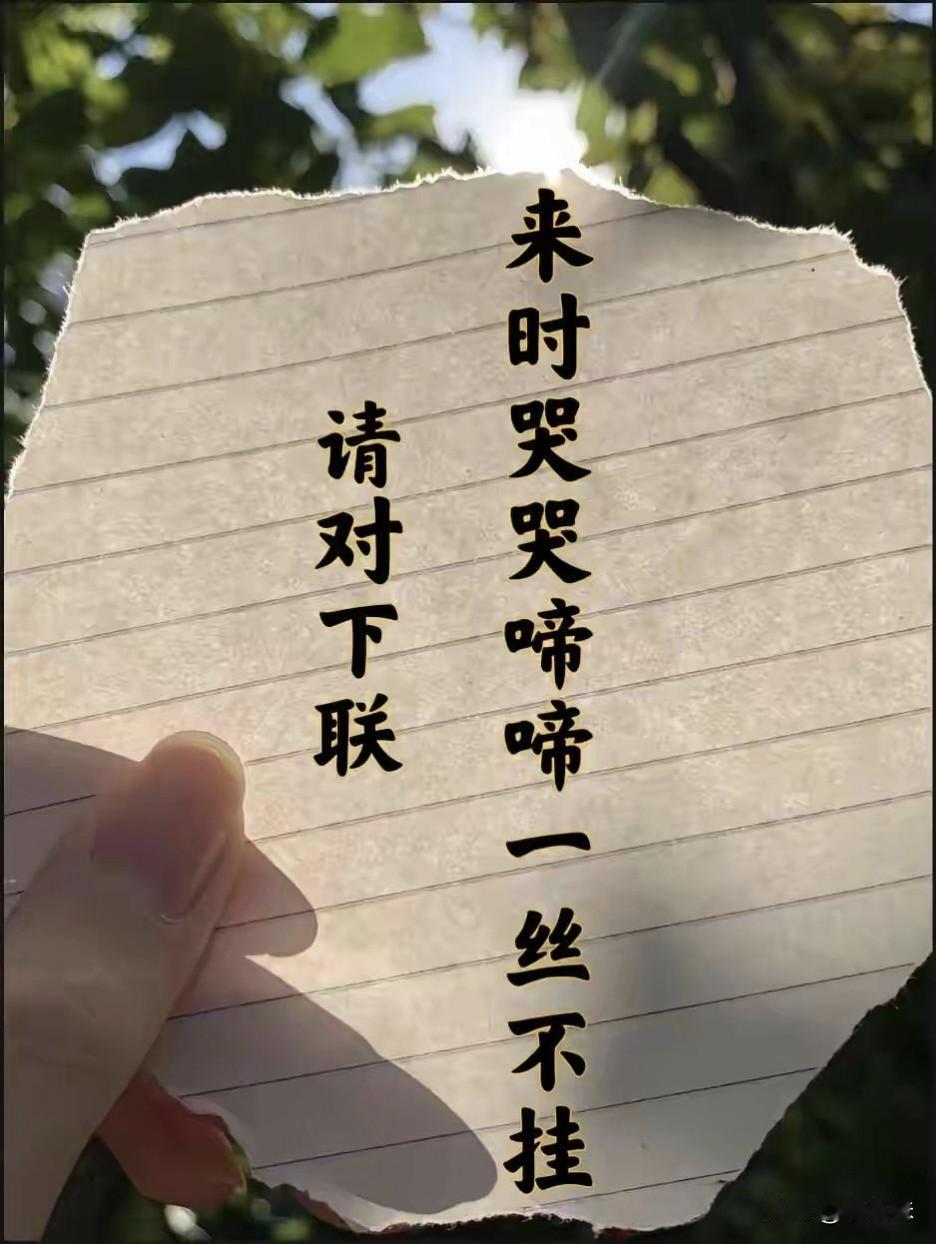 来时哭哭啼啼一丝不挂
请对下联